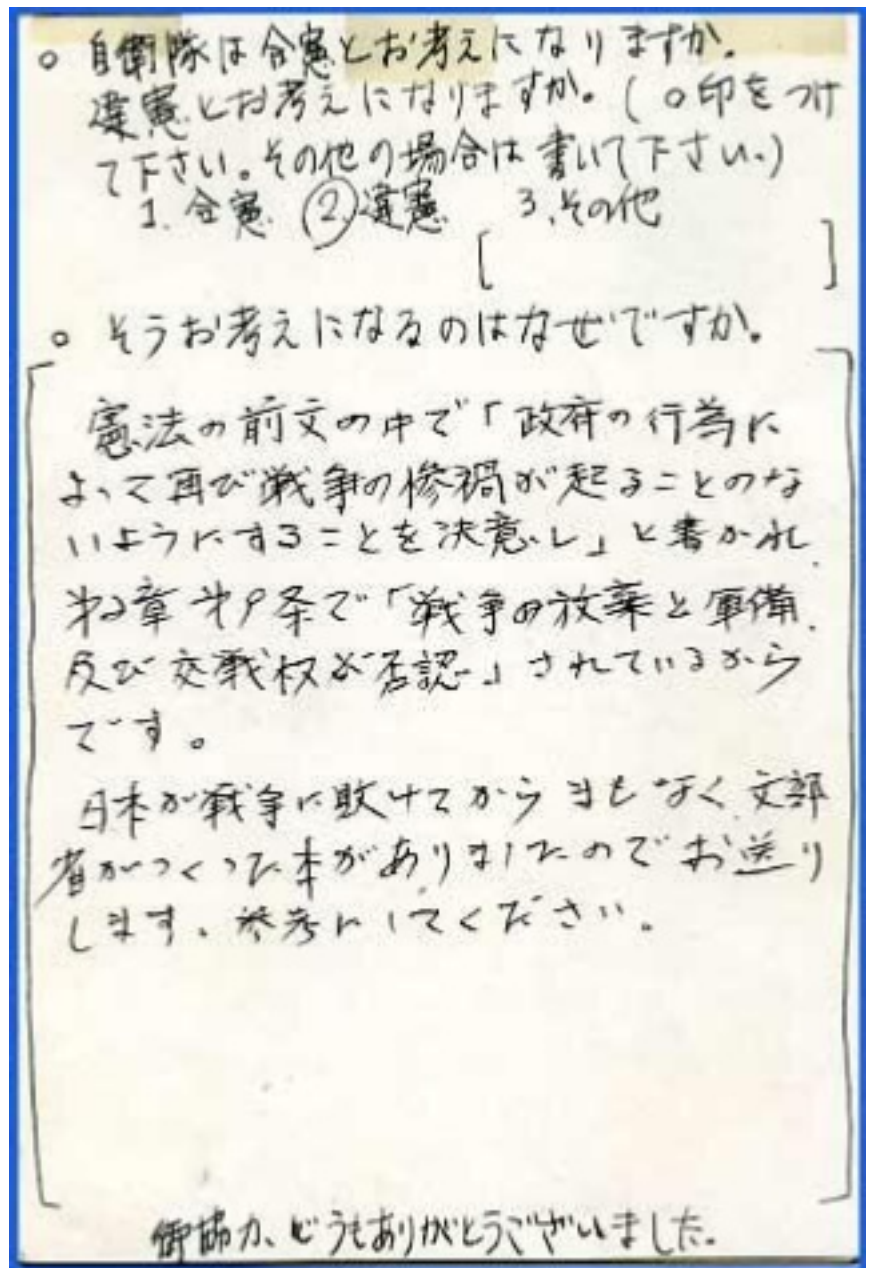 ○ 自衛隊は合憲とお考えになりますか。
違憲とお考えになりますか。(○印をつけ
て下さい。その他の場合は書いて下さい。)
1. 合憲 ②.違憲 3.その他
[ ]
○ そうお考えになるのはなぜですか。
憲法の前文の中で「政府の行為に
よって再び戦争の惨禍が起ることのな
いようにすることを決意し」と書かれ、
第2章第9条で「戦争の放棄と軍備、
及び交戦权が否認」されているから
です。
日本が戦争に敗けてからまもなく、文部
省がつくった本がありましたのでお送り
します。参考にしてください。
御協力、どうもありがとうございました。